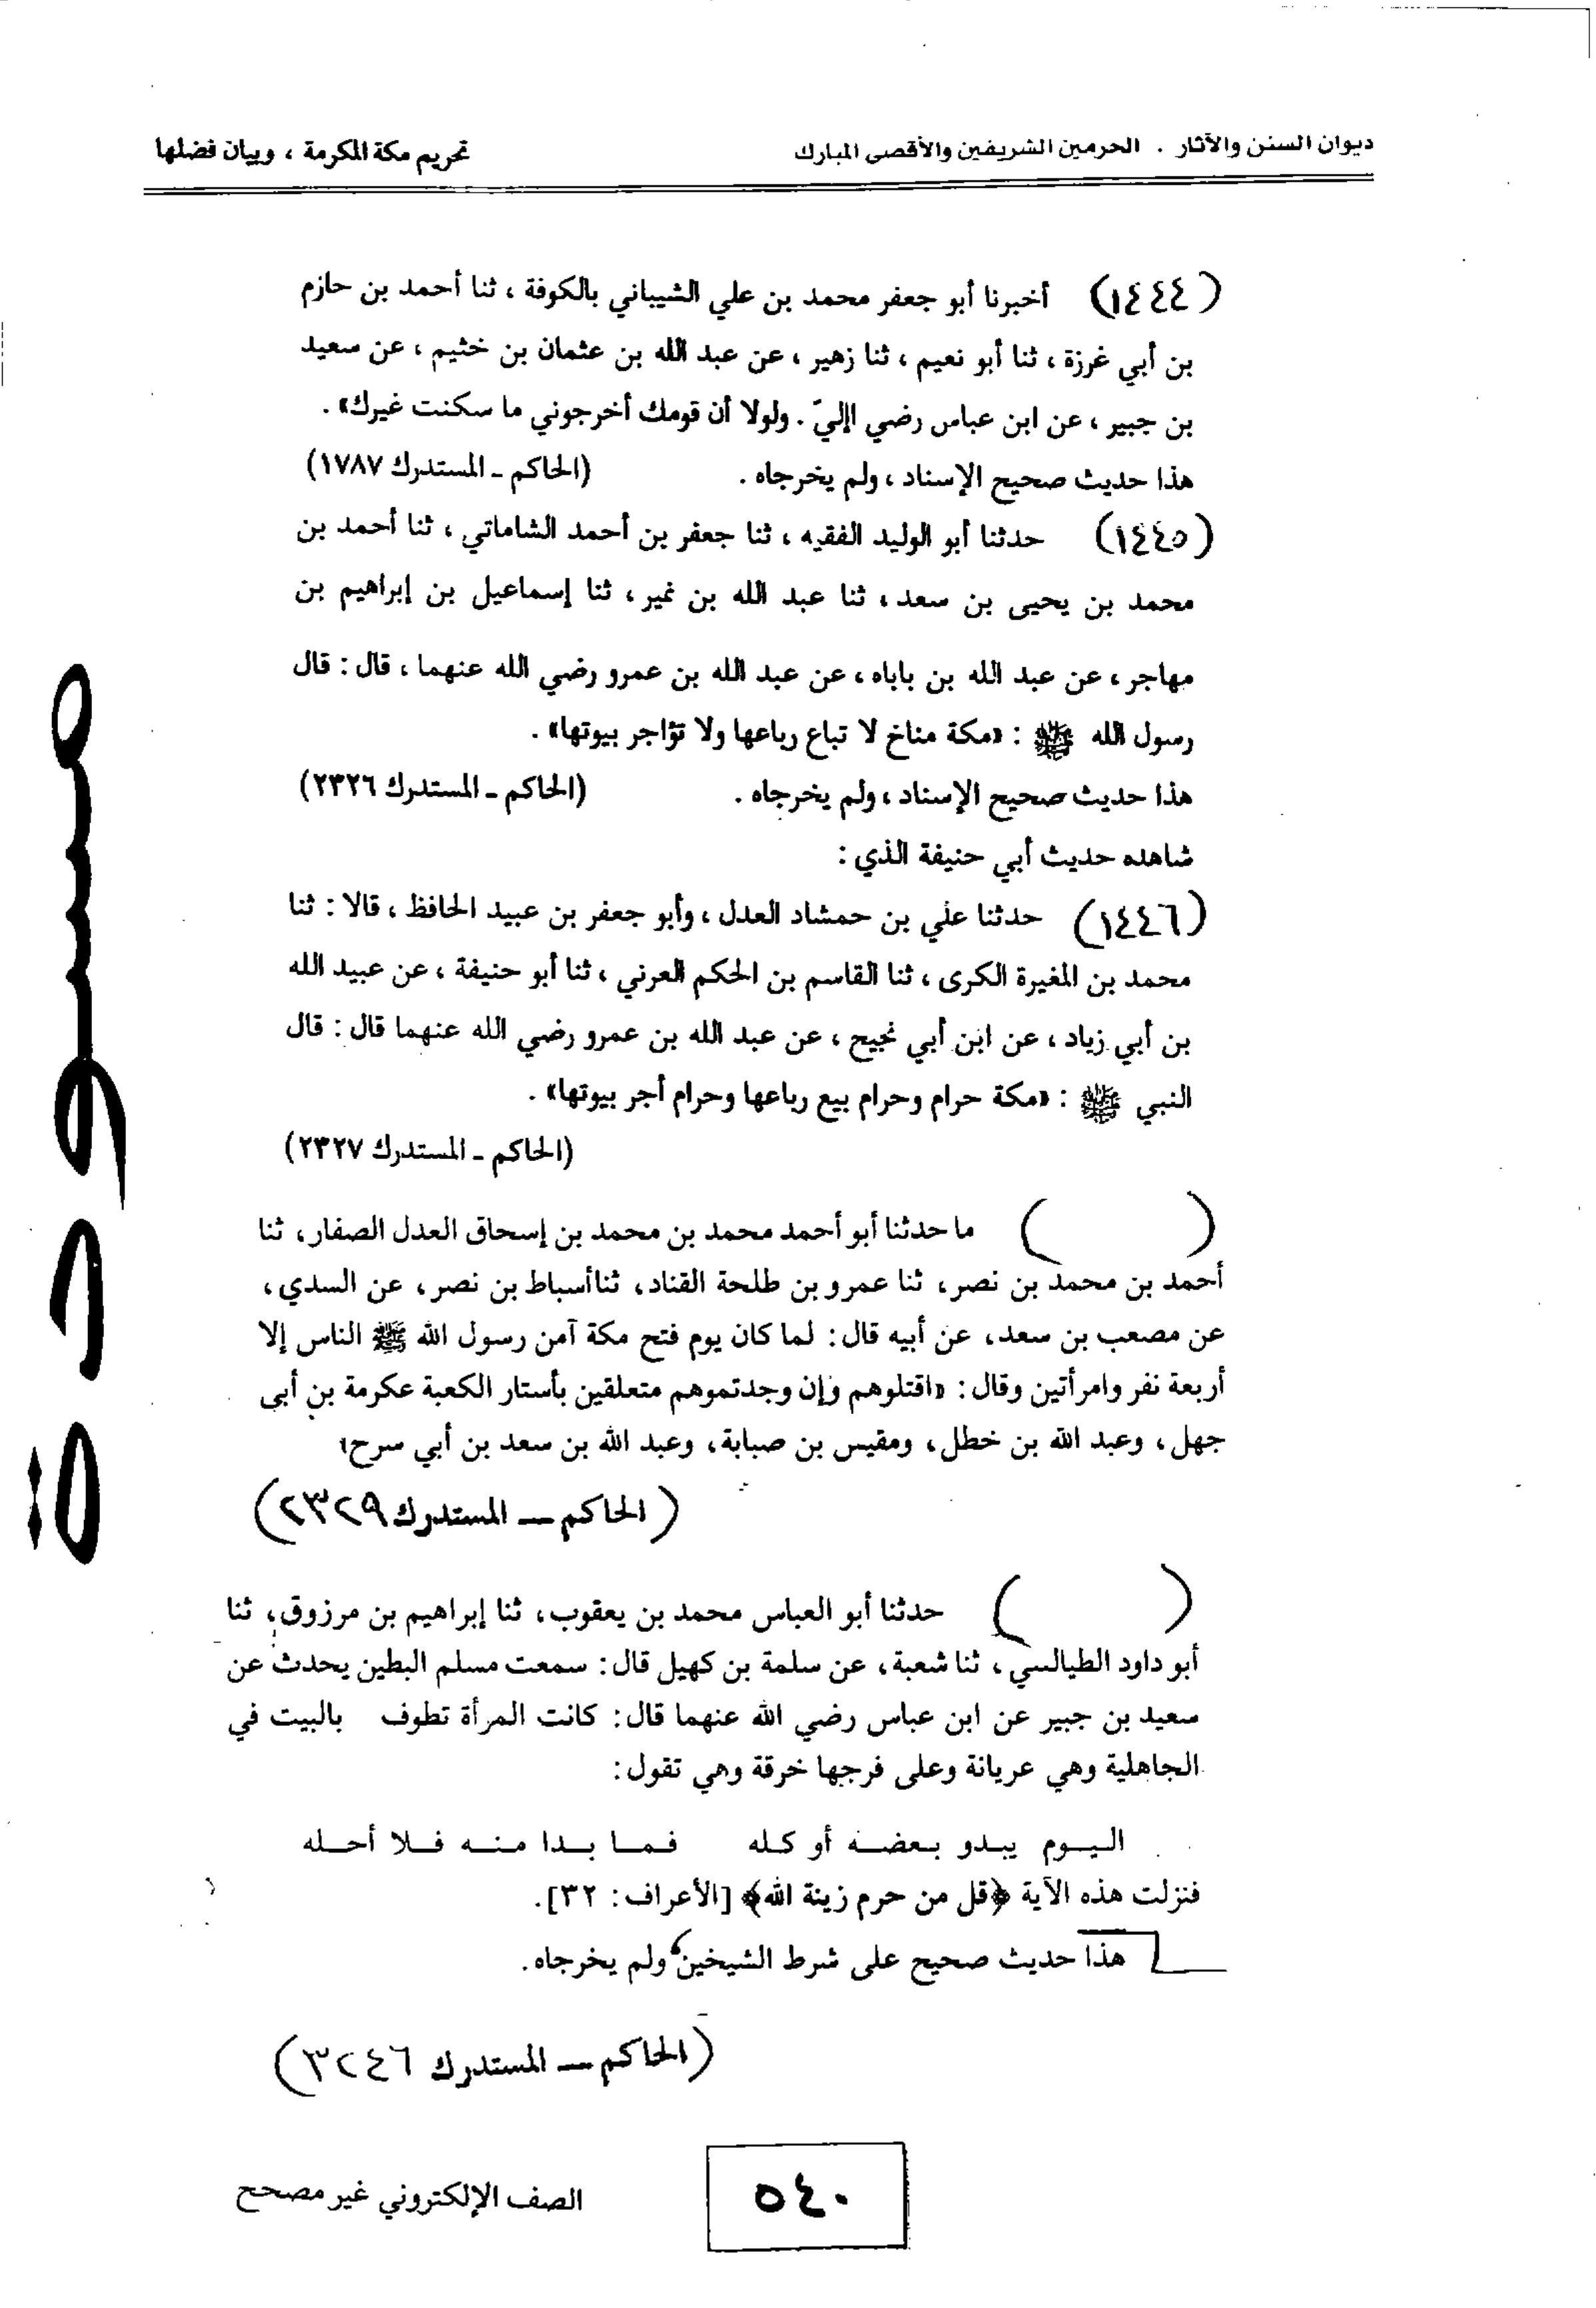 ديوان السنن والآثار . الحرمين الشريفين والأقصى المبارك
تحريم مكة المكرمة ، وبيان فضلها
(١٤٤٤) أخبرنا أبو جعفر محمد بن علي الشيباني بالكوفة ، ثنا أحمد بن حازم
بن أبي غرزة ، ثنا أبو نعيم ، ثنا زهير ، عن عبد الله بن عثمان بن خثيم ، عن سعيد
بن جبير ، عن ابن عباس رضي اإليّ . ولولا أن قومك أخرجوني ما سكنت غيرك» .
هذا حديث صحيح الإسناد ، ولم يخرجاه . (الحاكم - المستدرك ١٧٨٧)
(١٤٤٥) حدثنا أبو الوليد الفقيه ، ثنا جعفر بن أحمد الشاماتي ، ثنا أحمد بن
محمد بن يحيى بن سعد ، ثنا عبد الله بن نمير ، ثنا إسماعيل بن إبراهيم بن
مهاجر ، عن عبد الله بن باباه ، عن عبد الله بن عمرو رضي الله عنهما ، قال : قال
رسول الله ﷺ : «مكة مناخ لا تباع رباعها ولا تؤاجر بيوتها» .
هذا حديث صحيح الإسناد ، ولم يخرجاه . (الحاكم - المستدرك ٢٣٢٦)
شاهده حديث أبي حنيفة الذي :
(١٤٤٦) حدثنا علي بن حمشاد العدل ، وأبو جعفر بن عبيد الحافظ ، قالا : ثنا
محمد بن المغيرة الكرى ، ثنا القاسم بن الحكم العرني ، ثنا أبو حنيفة ، عن عبيد الله
بن أبي زياد ، عن ابن أبي نجيح ، عن عبد الله بن عمرو رضي الله عنهما قال : قال
النبي ﷺ : «مكة حرام وحرام بيع رباعها وحرام أجر بيوتها» .
(الحاكم - المستدرك ٢٣٢٧)
( ) ما حدثنا أبو أحمد محمد بن محمد بن إسحاق العدل الصفار، ثنا
أحمد بن محمد بن نصر، ثنا عمرو بن طلحة القناد، ثنا أسباط بن نصر، عن السدي،
عن مصعب بن سعد، عن أبيه قال: لما كان يوم فتح مكة آمن رسول الله ﷺ الناس إلا
أربعة نفر وامرأتين وقال: «اقتلوهم وإن وجدتموهم متعلقين بأستار الكعبة عكرمة بن أبي
جهل، وعبد الله بن خطل، ومقيس بن صبابة، وعبد الله بن سعد بن أبي سرح»
(الحاكم – المستدرك ٢٣٢٩)
( ) حدثنا أبو العباس محمد بن يعقوب، ثنا إبراهيم بن مرزوق، ثنا
أبو داود الطيالسي، ثنا شعبة، عن سلمة بن كهيل قال: سمعت مسلم البطين يحدث عن
سعيد بن جبير عن ابن عباس رضي الله عنهما قال: كانت المرأة تطوف بالبيت في
الجاهلية وهي عريانة وعلى فرجها خرقة وهي تقول:
اليـوم يبـدو بـعضـه أو كـله فـمـا بـدا مـنـه فـلا أحـله
فنزلت هذه الآية ﴿قل من حرم زينة الله﴾ [الأعراف: ٣٢].
هذا حديث صحيح على شرط الشيخين، ولم يخرجاه.
(الحاكم – المستدرك ٣٢٤٦)
٥٤٠
الصف الإلكتروني غير مصحح
مسودة